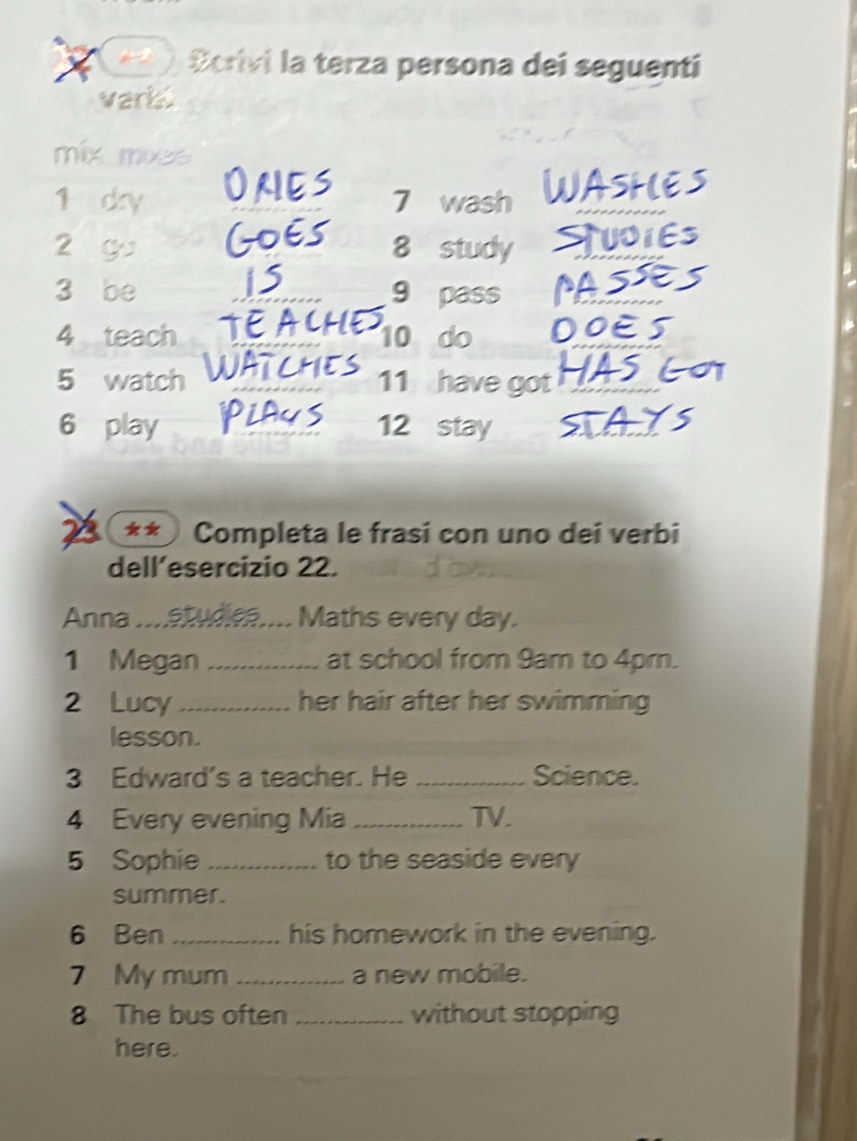 22 ** Scrivi la terza persona dei seguenti
verbi.
mix mixes
1 dry DRIES 7 wash WASHES
2 go GOES 8 study STUDIES
3 be IS 9 pass PASSES
4 teach TEACHES 10 do DOES
5 watch WATCHES 11 have got HAS GOT
6 play PLAYS 12 stay STAYS
23 ** Completa le frasi con uno dei verbi
dell'esercizio 22.
Anna ....studies.... Maths every day.
1 Megan .............. at school from 9am to 4pm.
2 Lucy .............. her hair after her swimming
lesson.
3 Edward's a teacher. He .............. Science.
4 Every evening Mia .............. TV.
5 Sophie .............. to the seaside every
summer.
6 Ben .............. his homework in the evening.
7 My mum .............. a new mobile.
8 The bus often .............. without stopping
here.